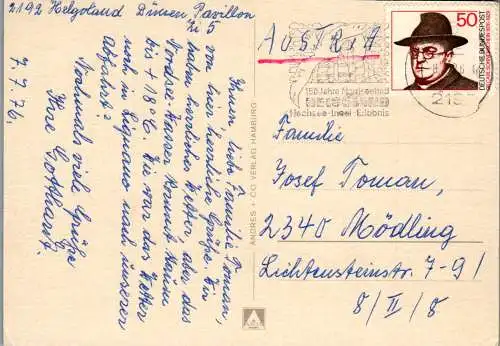 2192 Helgoland Dünen Pavillon
Zi 5
7.7.76.
Ihnen, liebe Familie Toman,
von hier herzliche Grüße. Wir
haben herrliches Wetter aber das
Nordsee Wasser kommt kaum
bis + 18°C. Wie war das Wetter
noch in Lignano nach unserer
Abfahrt?
Nochmals viele Grüße
Ihre
ANDRES + CO VERLAG HAMBURG
AUSTRIA
150 Jahre Nordseebad
HELGOLAND
Hochsee-Insel-Erlebnis
50
DEUTSCHE BUNDESPOST
Familie
Josef Toman,
2340 Mödling
Lichtensteinstr. 7-9/
8/II/8